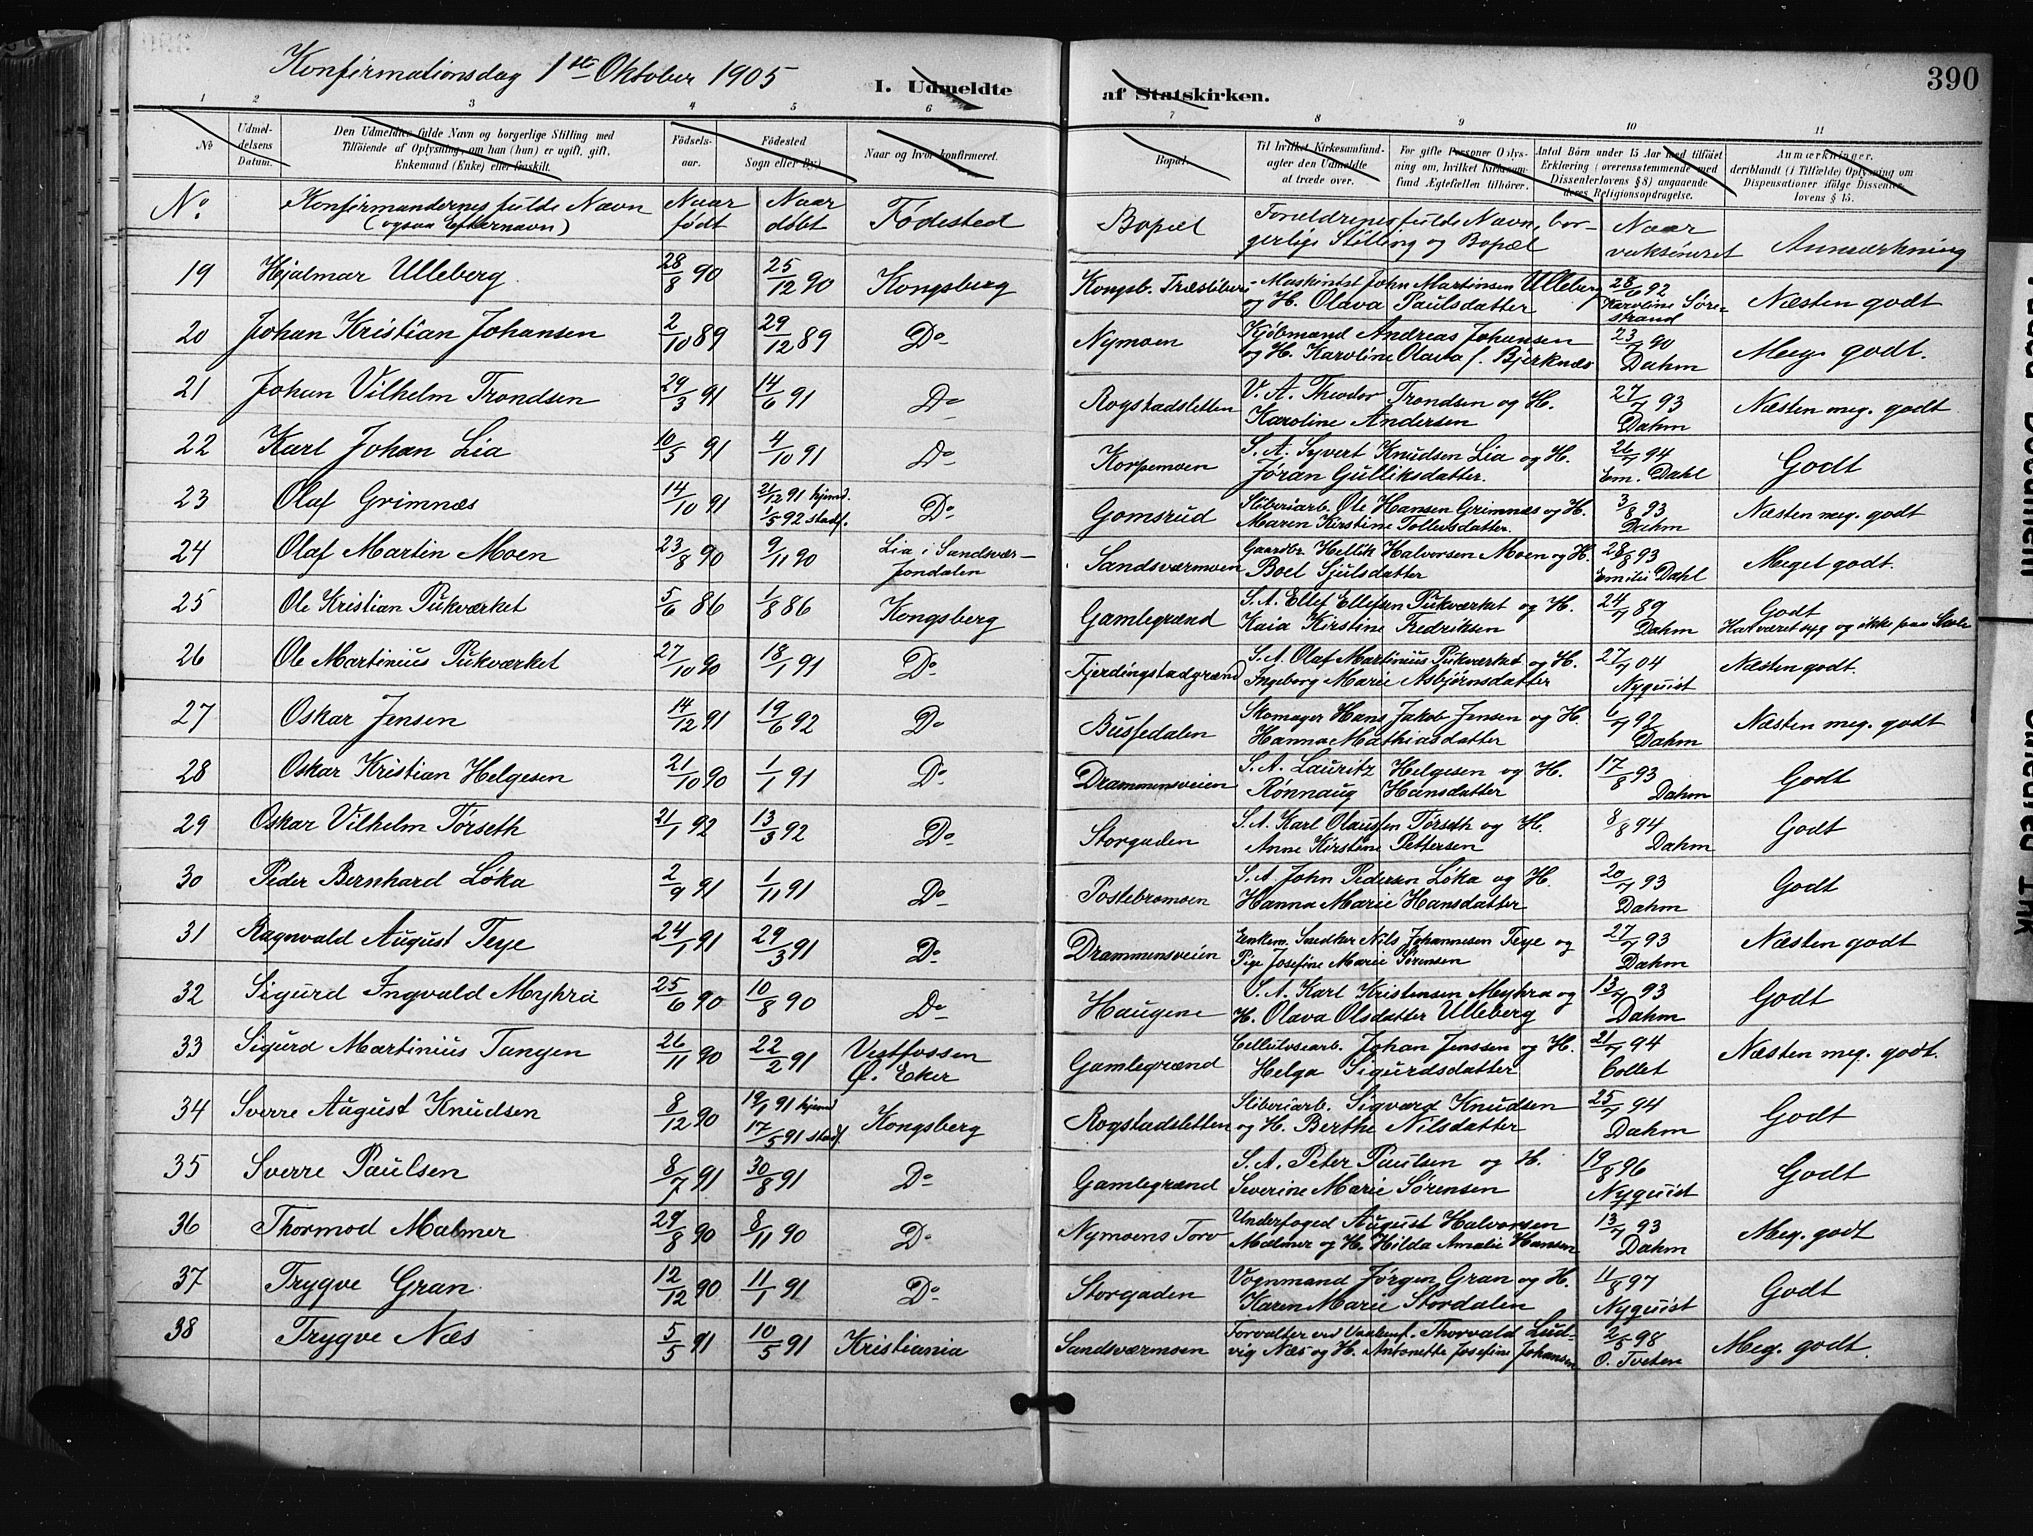 Konfirmationsdag 1ste Oktober 1905
I. Udmeldte af Statskirken.
390
1 2 3 4 5 6 7 8 9 10 11
No
Udmeldelsens Datum.
Den Udmeldtes fulde Navn og borgerlige Stilling med
Tilføiende af Oplysning, om han (hun) er ugift, gift,
Enkemand (Enke) eller fraskilt.
Fødselsaar.
Fødested
Sogn eller By.)
Naar og hvor konfirmeret.
Bopæl.
Til hvilket Kirkesamfund
agter den Udmeldte
at træde over.
For gifte Personer Oplysning
om, hvilket Kirkesamfund
Ægtefællen tilhører.
Antal Børn under 15 Aar med tilføiet
Erklæring (overensstemmende med
Dissenterlovens § 8) angaaende
deres Religionsopdragelse.
Anmærkninger,
deriblandt (i Tilfælde) Oplysning om
Dispensationer ifølge Dissenterlovens
§ 15.
No. Konfirmandernes fulde Navn (ogsaa Efternavn) Naar født Naar døbt Fødested Bopæl Forældrenes fulde Navn, borgerlige Stilling og Bopæl Naar vaksineret Anmærkning
19 Hjalmar Ulleberg 28/8 90 25/12 90 Kongsberg Kongsb. Træsliberi Maskinist John Martinsen Ulleberg og H. Olava Paulsdatter 28/6 92 Karoline Sørestrand Næsten godt
20 Johan Kristian Johansen 2/10 89 29/12 89 Do Nymoen Kjøbmand Andreas Johansen og H. Karoline Olava f. Bjerknæs 23/7 90 Dahm Meg. godt.
21 Johan Vilhelm Trondsen 29/3 91 14/6 91 Do Rogstadsletten V. A. Theodor Trondsen og H. Karoline Andersen 27/7 93 Dahm Næsten meg. godt
22 Karl Johan Lia 10/5 91 4/10 91 Do Korpemoen S. A. Syvert Knudsen Lia og H. Jøran Gulliksdatter. 26/7 94 Em. Dahl Godt
23 Olaf Grimnæs 14/10 91 21/12 91 hjemd. 1/5 92 stadf. Do Gomsrud Sliberiarb. Ole Hansen Grimnæs og H. Maren Kirstine Tollevsdatter. 3/8 93 Dahm Næsten meg. godt
24 Olaf Martin Moen 23/8 90 9/11 90 Lia i Sandsvær-Jondalen Sandsværmoen Gaardbr. Hellik Halvorsen Moen og H. Boel Sjulsdatter 28/8 93 Emilie Dahl Meget godt.
25 Ole Kristian Pukværket 5/6 86 1/8 86 Kongsberg Gamlegrænd S. A. Ellef Ellefsen Pukværket og H. Kaia Kirstine Fredriksen 24/7 89 Dahm Godt Har været syg og ikke paa Skole
26 Ole Martinius Pukværket 27/10 90 18/1 91 Do Fjerdingstadgrænd S. A. Olaf Martinius Pukværket og H. Ingeborg Marie Asbjørnsdatter 27/7 04 Nyquist Næsten godt.
27 Oskar Jensen 14/12 91 19/6 92 Do Bussedalen Skomager Hans Jakob Jensen og H. Hanna Mathiasdatter 6/7 92 Dahm Næsten meg. godt
28 Oskar Kristian Helgesen 21/10 90 1/1 91 Do Drammensveien S. A. Lauritz Helgesen og H. Rønnaug Hansdatter 17/8 93 Dahm Godt
29 Oskar Vilhelm Torseth 21/1 92 13/3 92 Do Storgaden S. A. Karl Olaussen Torseth og H. Anne Kirstine Pettersen 8/8 94 Dahm Godt
30 Peder Bernhard Løka 2/9 91 1/11 91 Do Postebromoen S. A. John Pedersen Løka og H. Hanna Marie Hansdatter 20/7 93 Dahm Godt
31 Ragnvald August Teye 24/1 91 29/3 91 Do Drammensveien Enkem. Snedker Nils Johannesen Teye og Pige Josefine Marie Sørensen 27/7 93 Dahm Næsten godt
32 Sigurd Ingvald Myhra 25/6 90 10/8 90 Do Haugene S. A. Karl Kristensen Myhra og H. Olava Olsdatter Ulleberg 13/7 93 Dahm Godt
33 Sigurd Martinius Tangen 26/11 90 22/2 91 Vestfossen Ø. Eker Gamlegrænd Cellulosearb. Johan Jenssen og H. Helga Sigurdsdatter 21/7 94 Collet Næsten meg. godt.
34 Sverre August Knudsen 8/12 90 19/1 91 hjemd 17/5 91 stadf. Kongsberg Rogstadsletten Sliberiarb. Sigvard Knudsen og H. Berthe Nilsdatter 25/7 94 Dahm Godt
35 Sverre Paulsen 8/7 91 30/8 91 Do Gamlegrænd S. A. Peter Paulsen og H. Severine Marie Sørensen 19/8 96 Nyquist Godt
36 Thormod Malmer 29/8 90 8/11 90 Do Nymoens Torv Underfoged August Halvorsen Malmer og H. Hilda Amalie Hansen 13/7 93 Dahm Meg. godt
37 Trygve Gran 12/12 90 11/1 91 Do Storgaden Vognmand Jørgen Gran og H. Karen Marie Stordalen 11/8 97 Nyquist Godt
38 Trygve Næs 5/5 91 10/5 91 Kristiania Sandsværmoen Forvalter ved Thorvald Ludvig Næs og H. Antonette Josefine Johansen 2/5 98 O. Tveten Meg. godt.